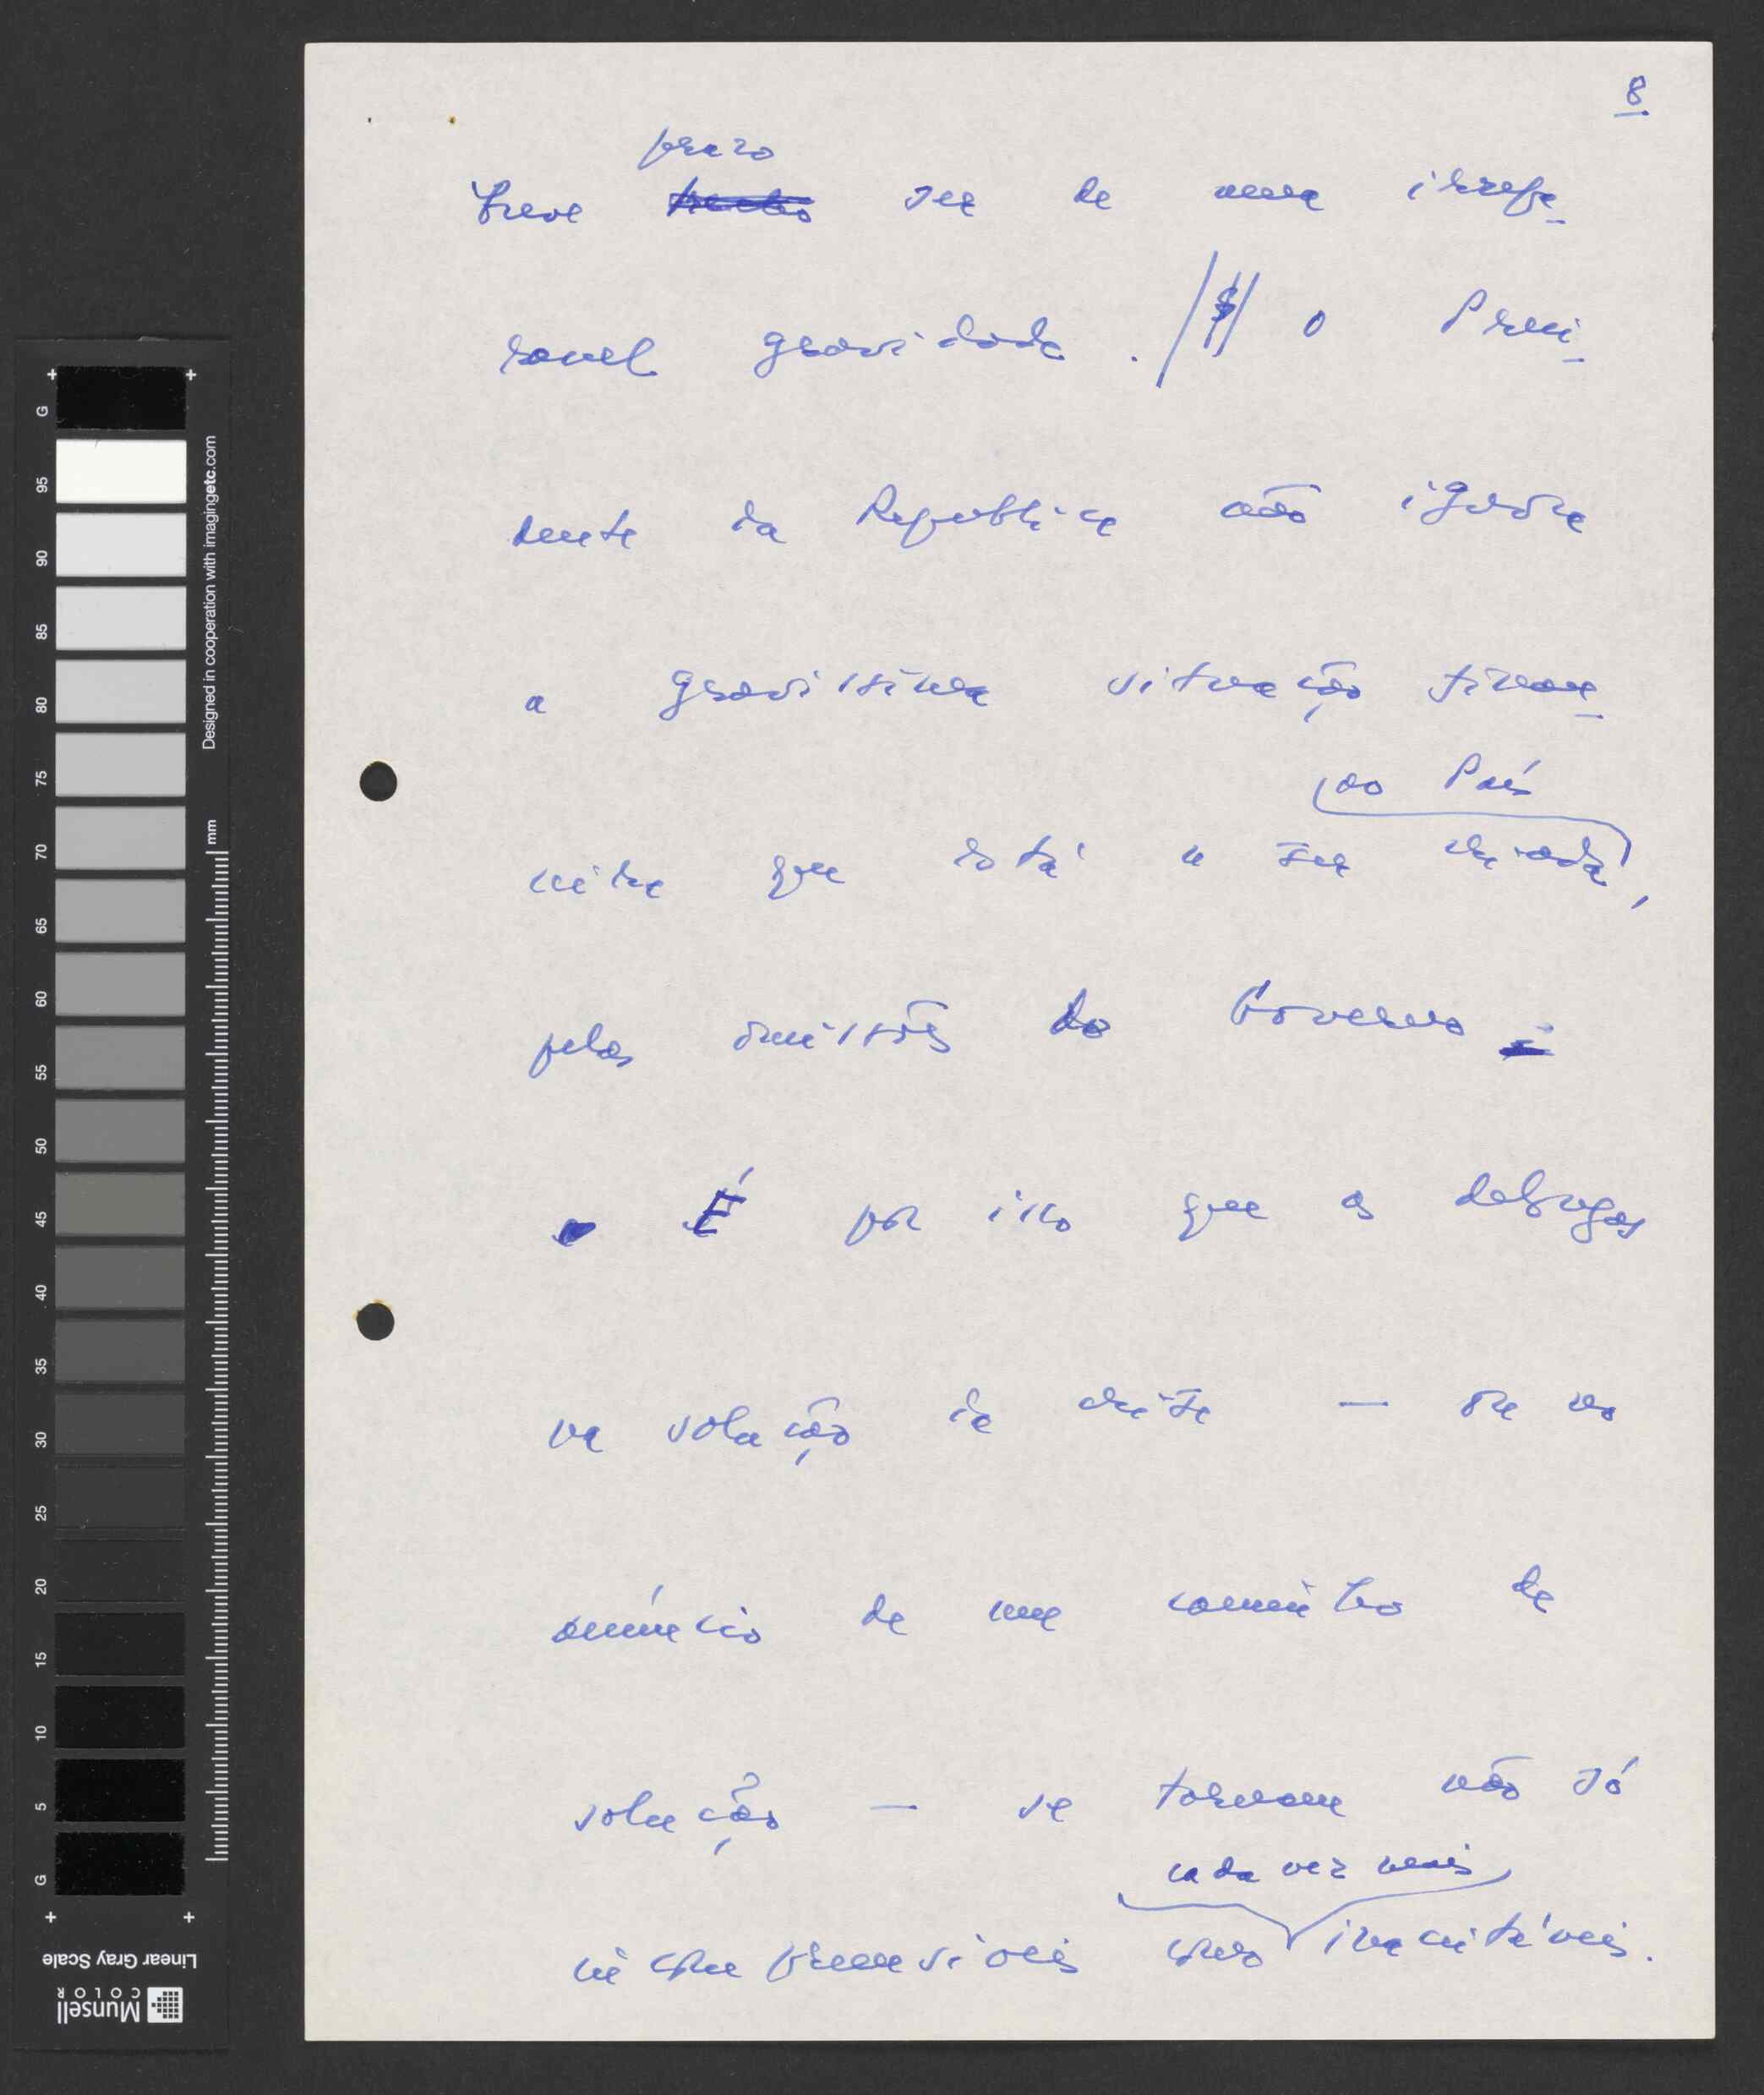 8
prazo
breve ser de uma irrepa-
ravel gravidade. /§// O Presi-
dente da Republica não ignora
a gravissima situação finan-
ao País
ceira que está a ser criada,
pelas omissões do Governo.
É por isso que as delongas
na solução da crise — ou no
anúncio de um caminho de
solução — se tornam não só
cada vez mais
incompreensiveis como inaceitáveis.
G 95 90 85 80 75 70 65 60 55 50 45 40 35 30 25 20 15 10 5 G
Designed in cooperation with imagingetc.com
mm
Linear Gray Scale
Munsell
COLOR